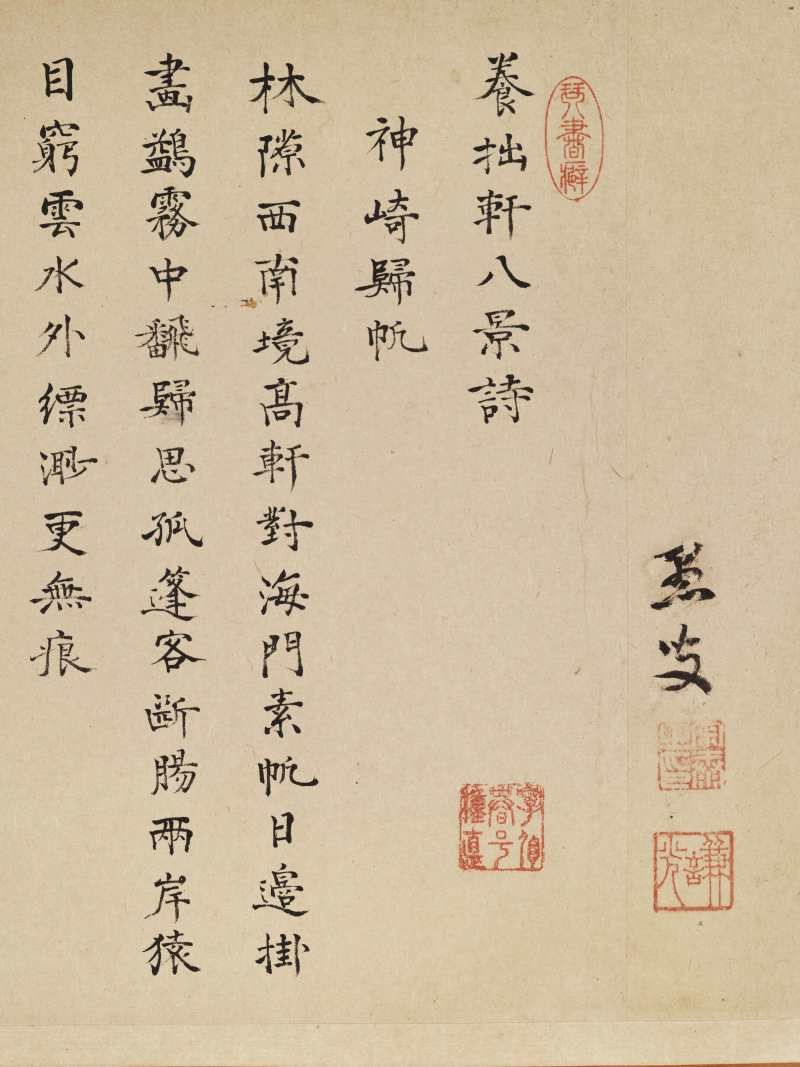 愚叟
琴書癖
養拙軒八景詩
神崎歸帆
林隙西南境高軒對海門素帆日邊掛
畵鷁霧中飜歸思孤蓬客斷腸兩岸猿
目窮雲水外縹渺更無痕